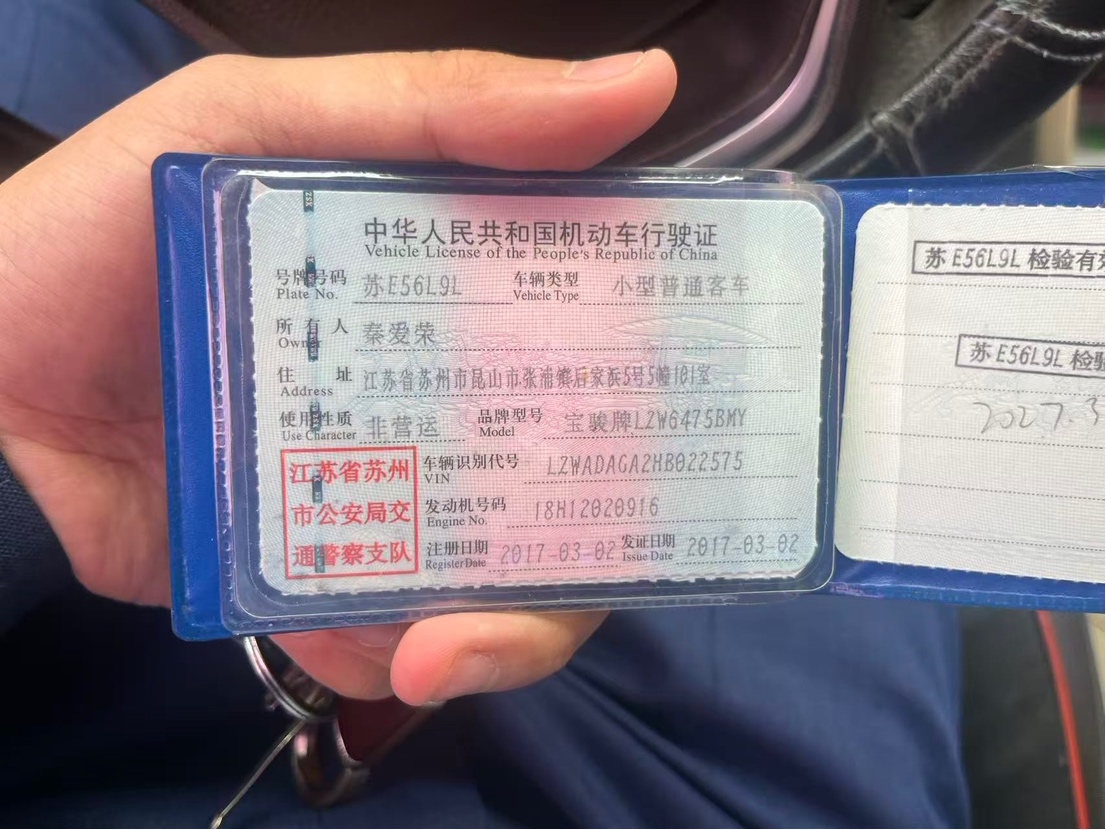 中华人民共和国机动车行驶证
Vehicle License of the People's Republic of China
号牌号码 苏E56L9L 车辆类型 小型普通客车
Plate No. Vehicle Type
所有人 秦爱荣
Owner
住址 江苏省苏州市昆山市张浦镇后家浜5号5幢101室
Address
使用性质 非营运 品牌型号 宝骏牌LZW6475BMY
Use Character Model
江苏省苏州
市公安局交
通警察支队
车辆识别代号 LZWADAGA2HB022575
VIN
发动机号码 18H12020916
Engine No.
注册日期 2017-03-02 发证日期 2017-03-02
Register Date Issue Date
苏E56L9L 检验有效
苏E56L9L 检验
2027.3